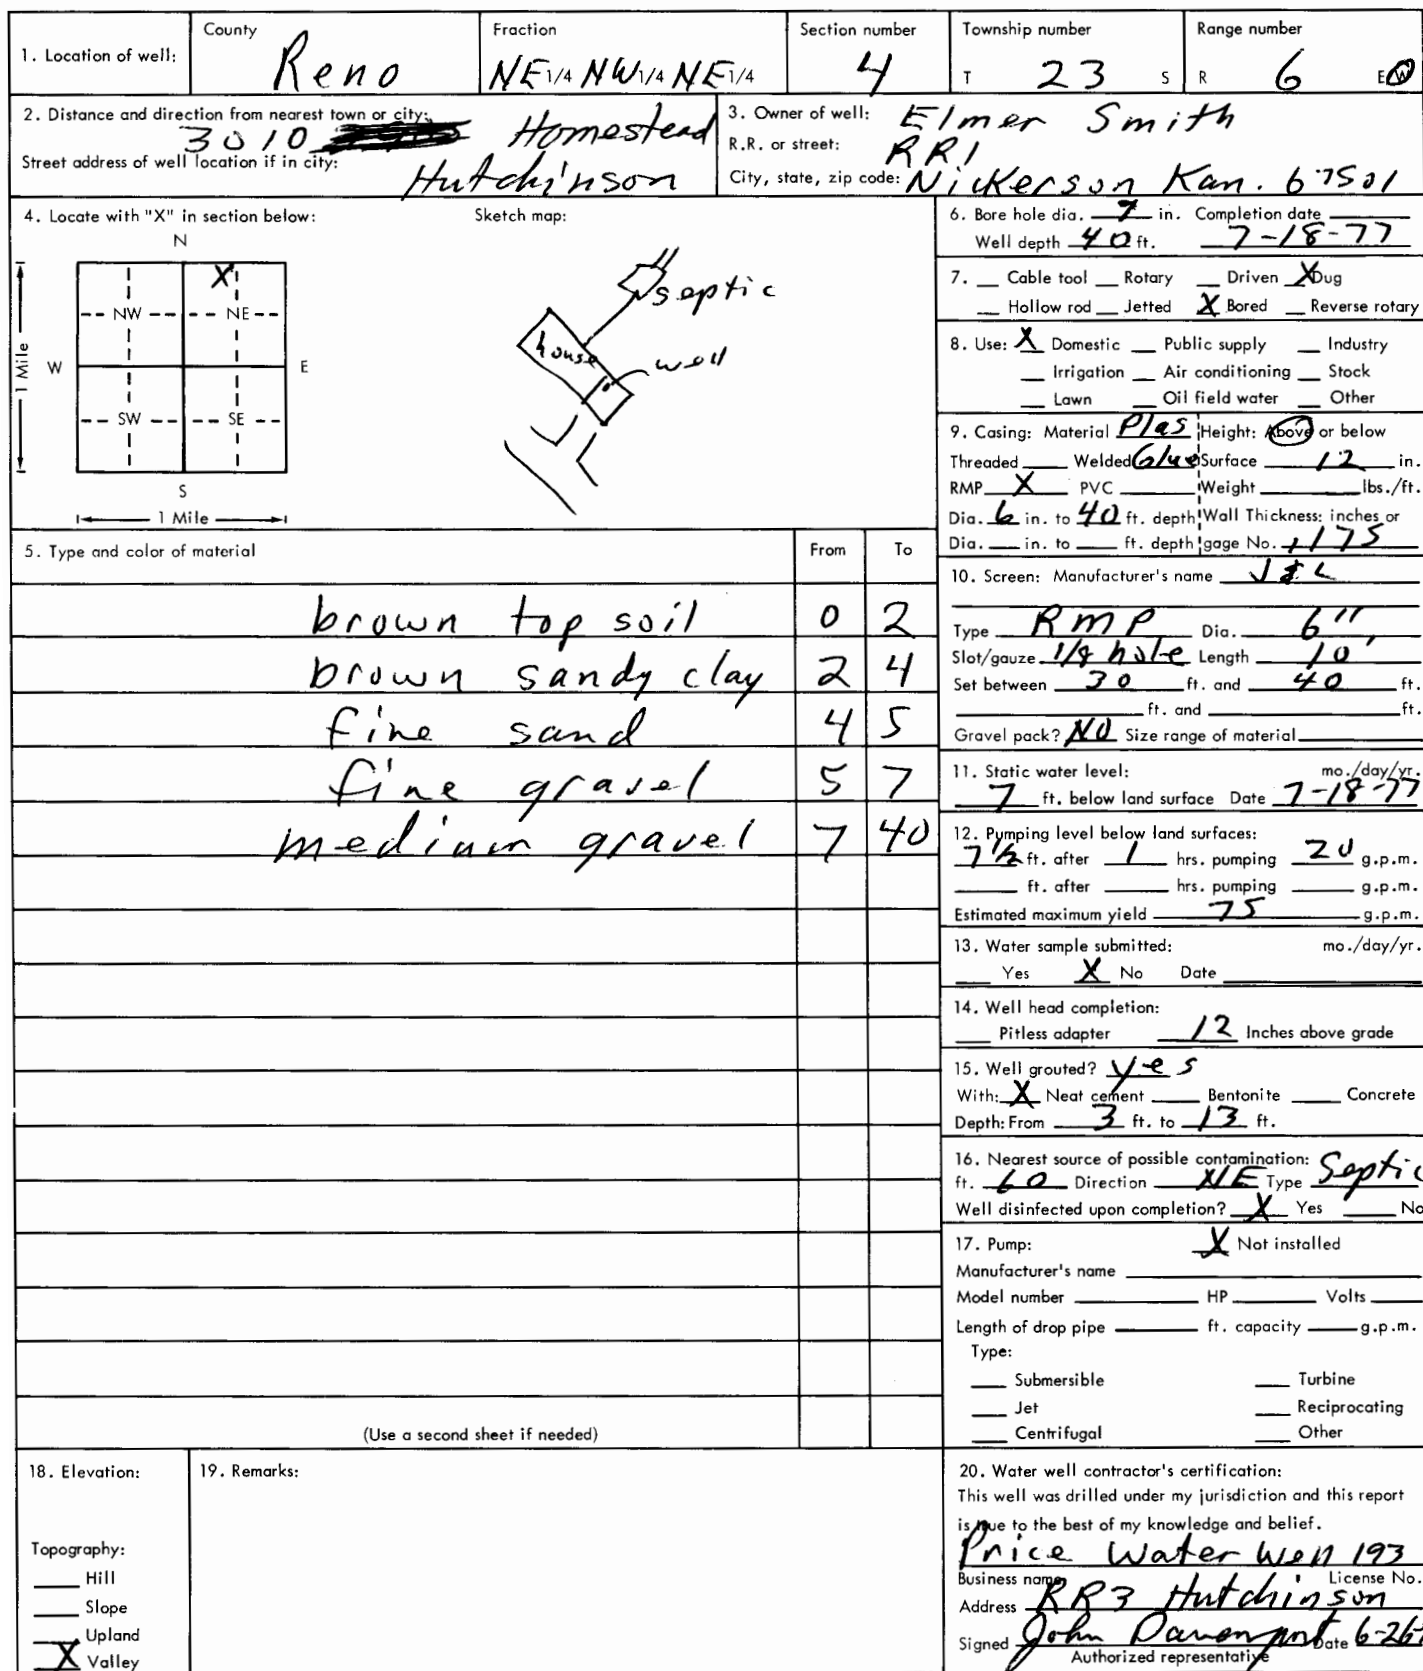 1. Location of well: County Reno Fraction NE 1/4 NW 1/4 NE 1/4 Section number 4 Township number T 23 S Range number R 6 E W
2. Distance and direction from nearest town or city: 3010 Homestead
Street address of well location if in city: Hutchinson
3. Owner of well: Elmer Smith
R.R. or street: RR1
City, state, zip code: Nickerson Kan. 67501
4. Locate with "X" in section below: Sketch map:
N
X
NW NE
W E
1 Mile
SW SE
S
1 Mile
septic
house
well
5. Type and color of material From To
brown top soil 0 2
brown sandy clay 2 4
fine sand 4 5
fine gravel 5 7
medium gravel 7 40
(Use a second sheet if needed)
6. Bore hole dia. 7 in. Completion date
Well depth 40 ft. 7-18-77
7. Cable tool Rotary Driven X Dug
Hollow rod Jetted X Bored Reverse rotary
8. Use: X Domestic Public supply Industry
Irrigation Air conditioning Stock
Lawn Oil field water Other
9. Casing: Material Plas Height: Above or below
Threaded Welded Glue Surface 12 in.
RMP X PVC Weight lbs./ft.
Dia. 6 in. to 40 ft. depth Wall Thickness: inches or
Dia. in. to ft. depth gage No. 175
10. Screen: Manufacturer's name
Type RMP Dia. 6"
Slot/gauze 1/8 hole Length 10'
Set between 30 ft. and 40 ft.
ft. and ft.
Gravel pack? NO Size range of material
11. Static water level: mo./day/yr.
7 ft. below land surface Date 7-18-77
12. Pumping level below land surfaces:
7 1/2 ft. after 1 hrs. pumping 20 g.p.m.
ft. after hrs. pumping g.p.m.
Estimated maximum yield 75 g.p.m.
13. Water sample submitted: mo./day/yr.
Yes X No Date
14. Well head completion:
Pitless adapter 12 Inches above grade
15. Well grouted? yes
With: X Neat cement Bentonite Concrete
Depth: From 3 ft. to 13 ft.
16. Nearest source of possible contamination:
ft. 60 Direction NE Type Septic
Well disinfected upon completion? X Yes No
17. Pump: X Not installed
Manufacturer's name
Model number HP Volts
Length of drop pipe ft. capacity g.p.m.
Type:
Submersible Turbine
Jet Reciprocating
Centrifugal Other
18. Elevation:
Topography:
Hill
Slope
Upland
X Valley
19. Remarks:
20. Water well contractor's certification:
This well was drilled under my jurisdiction and this report
is true to the best of my knowledge and belief.
Price Water Well 193
Business name License No.
Address RR3 Hutchinson
Signed John Davenport Date 6-26-
Authorized representative